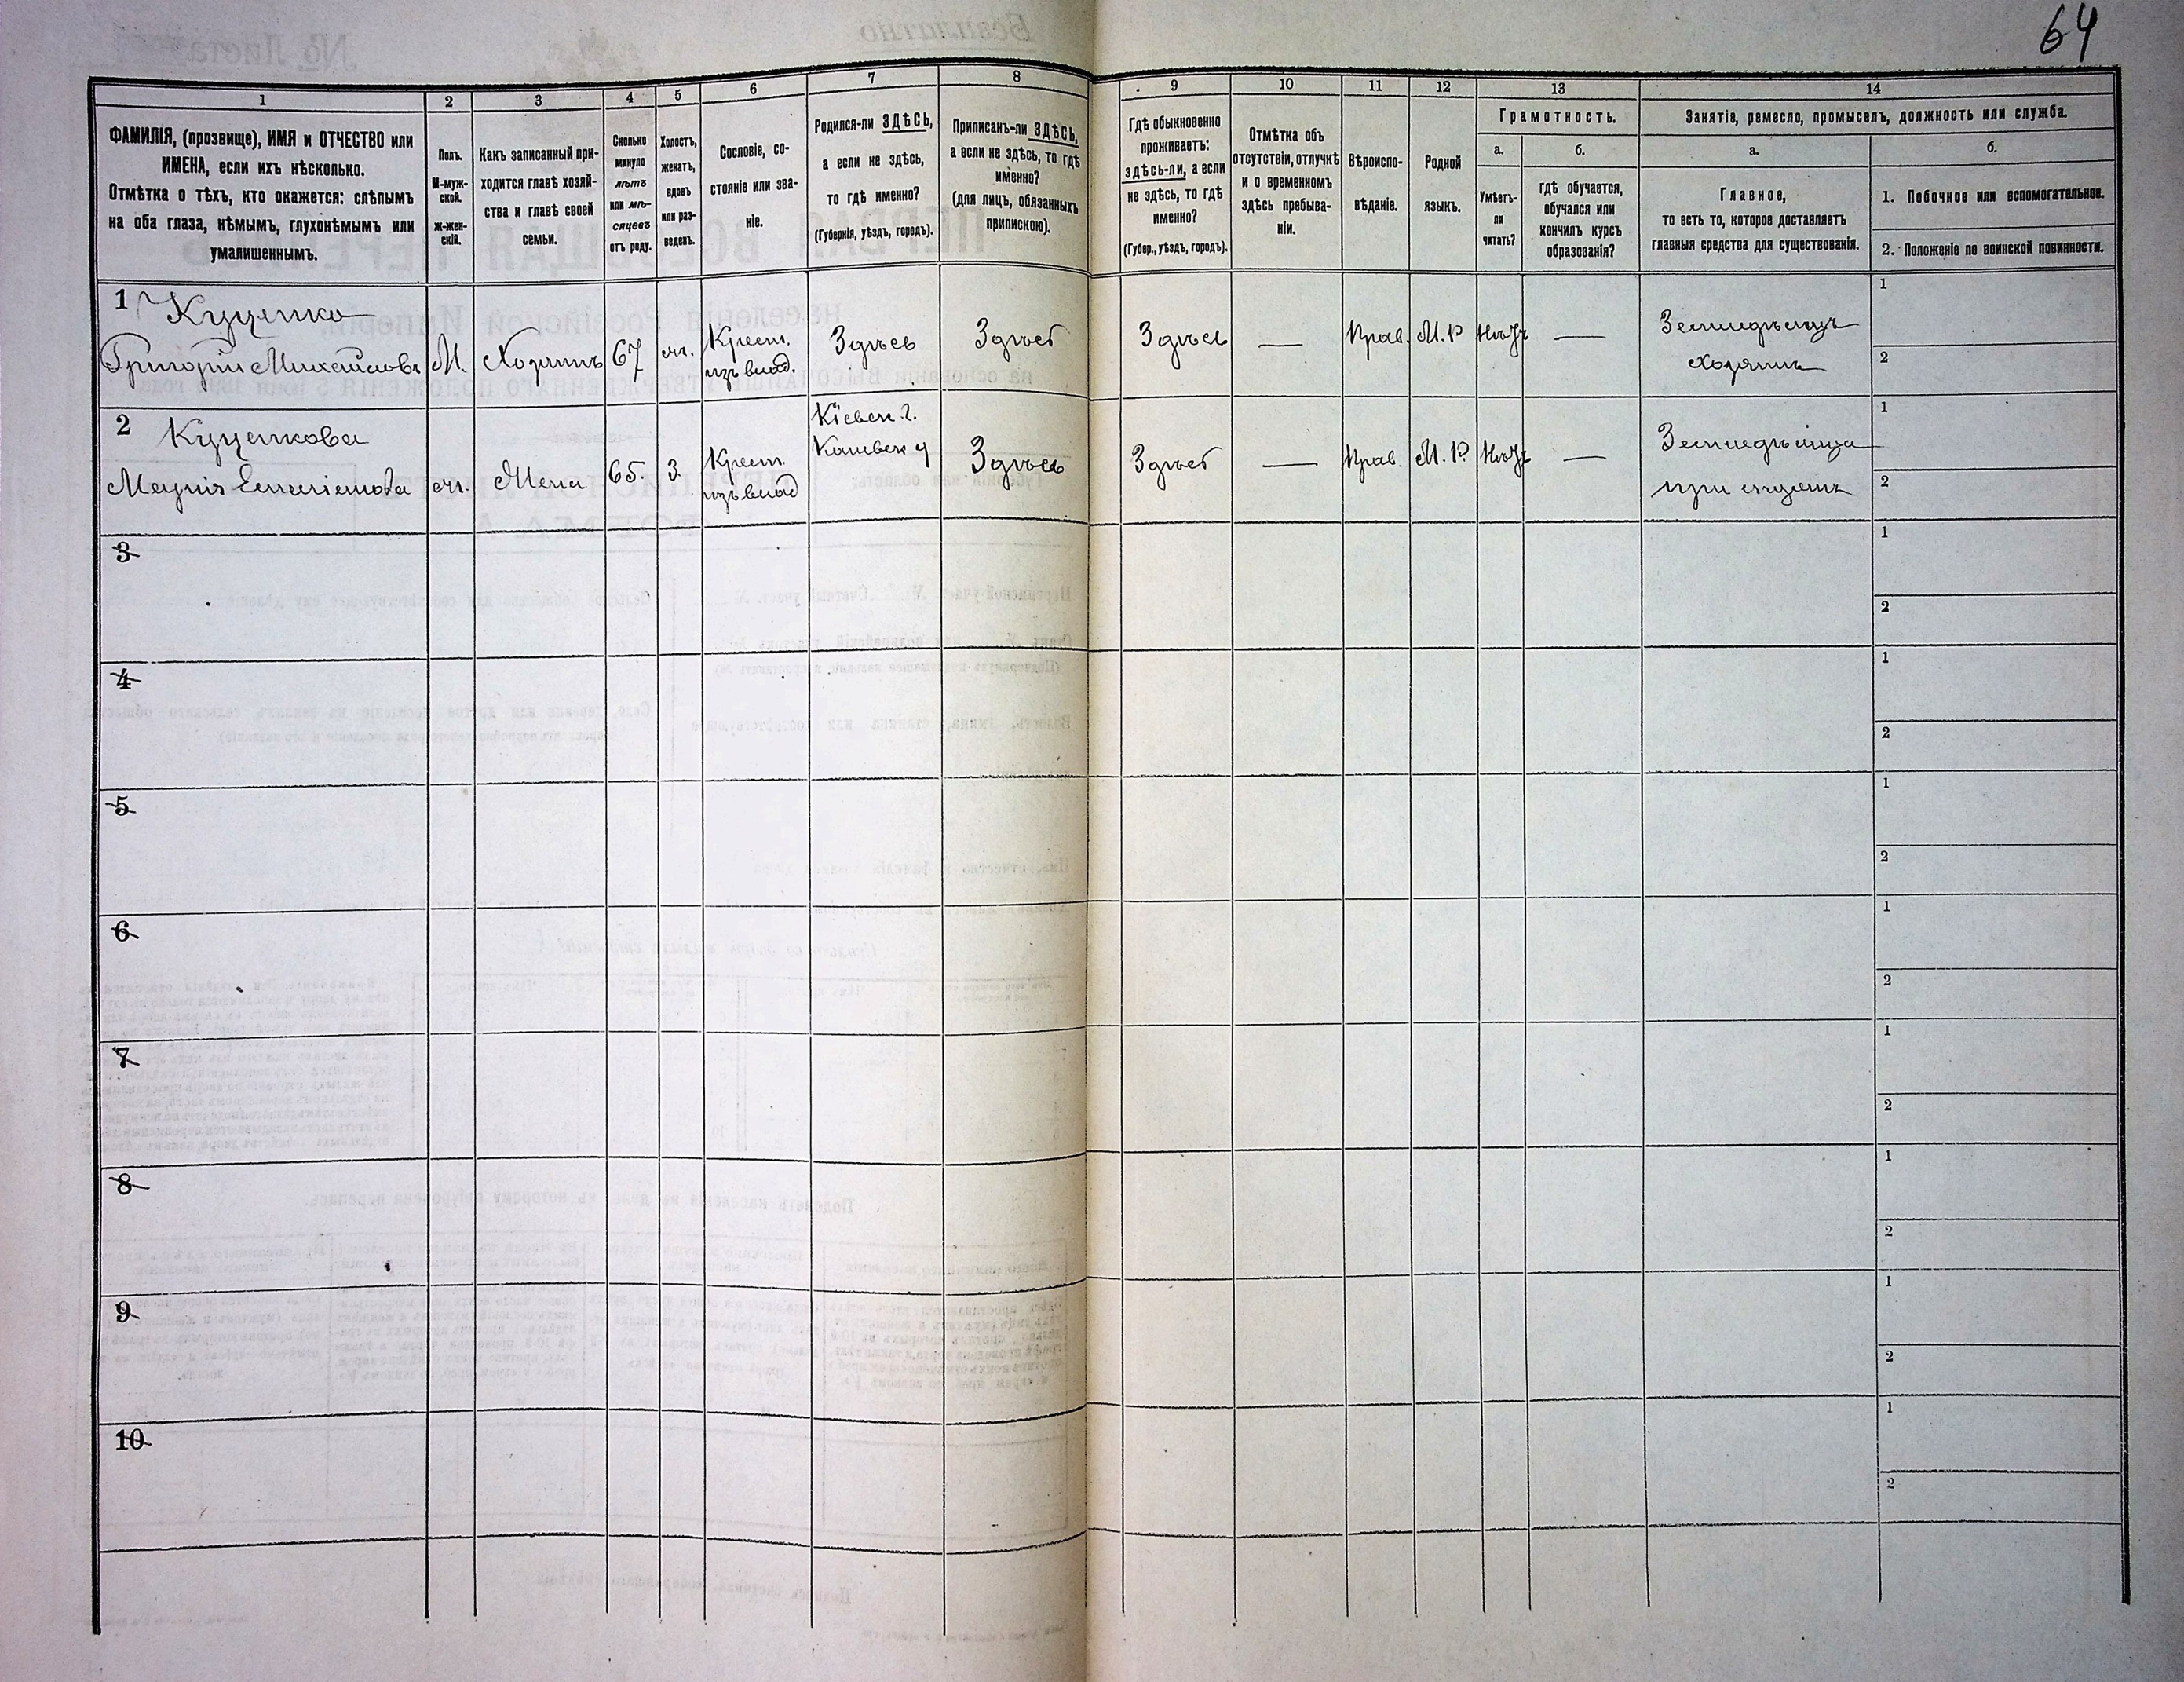 64
1
2
3
4
5
6
7
8
9
10
11
12
13
14
ФАМИЛІЯ, (прозвище), ИМЯ и ОТЧЕСТВО или
ИМЕНА, если ихъ нѣсколько.
Отмѣтка о тѣхъ, кто окажется: слѣпымъ
на оба глаза, нѣмымъ, глухонѣмымъ или
умалишеннымъ.
Полъ.
М-муж-
ской.
ж-жен-
скій.
Какъ записанный при-
ходится главѣ хозяй-
ства и главѣ своей
семьи.
Сколько
минуло
лѣтъ
или мѣ-
сяцевъ
отъ роду.
Холостъ,
женатъ,
вдовъ
или раз-
веденъ.
Сословіе, со-
стояніе или зва-
ніе.
Родился-ли ЗДѢСЬ,
а если не здѣсь,
то гдѣ именно?
(Губернія, уѣздъ, городъ).
Приписанъ-ли ЗДѢСЬ,
а если не здѣсь, то гдѣ
именно?
(для лицъ, обязанныхъ
припискою).
Гдѣ обыкновенно
проживаетъ:
здѣсь-ли, а если
не здѣсь, то гдѣ
именно?
(Губер., уѣздъ, городъ).
Отмѣтка объ
отсутствіи, отлучкѣ
и о временномъ
здѣсь пребыва-
ніи.
Вѣроиспо-
вѣданіе.
Родной
языкъ.
Грамотность.
а.
Умѣетъ-
ли
читать?
б.
гдѣ обучается,
обучался или
кончилъ курсъ
образованія?
Занятіе, ремесло, промыселъ, должность или служба.
а.
Главное,
то есть то, которое доставляетъ
главныя средства для существованія.
б.
1. Побочное или вспомогательное.
2. Положеніе по воинской повинности.
1 Куценко
Григорій Михайловъ
М.
Хозяинъ
67
ж.
Крест.
изъ влад.
Здѣсь
Здѣсь
Здѣсь
—
Прав.
М. Р.
Нѣтъ
—
Земледѣлецъ
хозяинъ
1
2
2 Куценкова
ж.
Жена
65.
З.
Крест.
изъ влад
Кіевск. г.
Каневск у
Здѣсь
Здѣсь
—
Прав.
М. Р.
Нѣтъ
—
Земледѣлица
при мужѣ
1
2
3
1
2
4
1
2
5
1
2
6
1
2
7
1
2
8
1
2
9
1
2
10
1
2